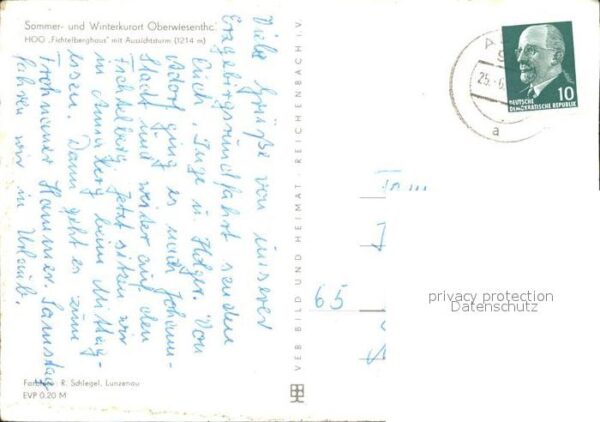 Sommer- und Winterkurort Oberwiesenthc
HOG „Fichtelberghaus" mit Aussichtsturm (1214 m)
Viele Grüße von unserer
Erzgebirgsrundfahrt senden
Euch, Inge u. Holger. Von
Adorf ging es nach Johann-
Stadt und weiter auf den
Fichtelberg. Jetzt sitzen wir
in Annaberg beim Mittag-
essen. Dann geht es zum
Frohnauer Hammer. Samstag
fahren wir in Urlaub.
Farbfoto: R. Schlegel, Lunzenau
EVP 0.20 M
VEB BILD UND HEIMAT · REICHENBACH I. V.
A
25.-6.
a
10
DEUTSCHE
DEMOKRATISCHE REPUBLIK
65
privacy protection
Datenschutz